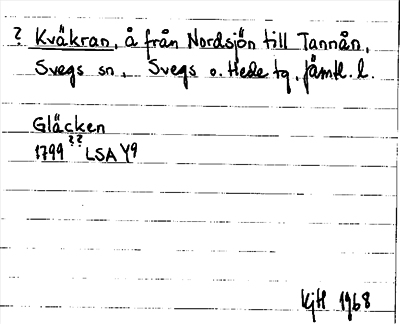 ? Kväkran, å från Nordsjön till Tannån,
Svegs sn, Svegs o. Hede tg, Jämtl. l.
Gläcken
1799 ?? LSA Y9
KjH 1968